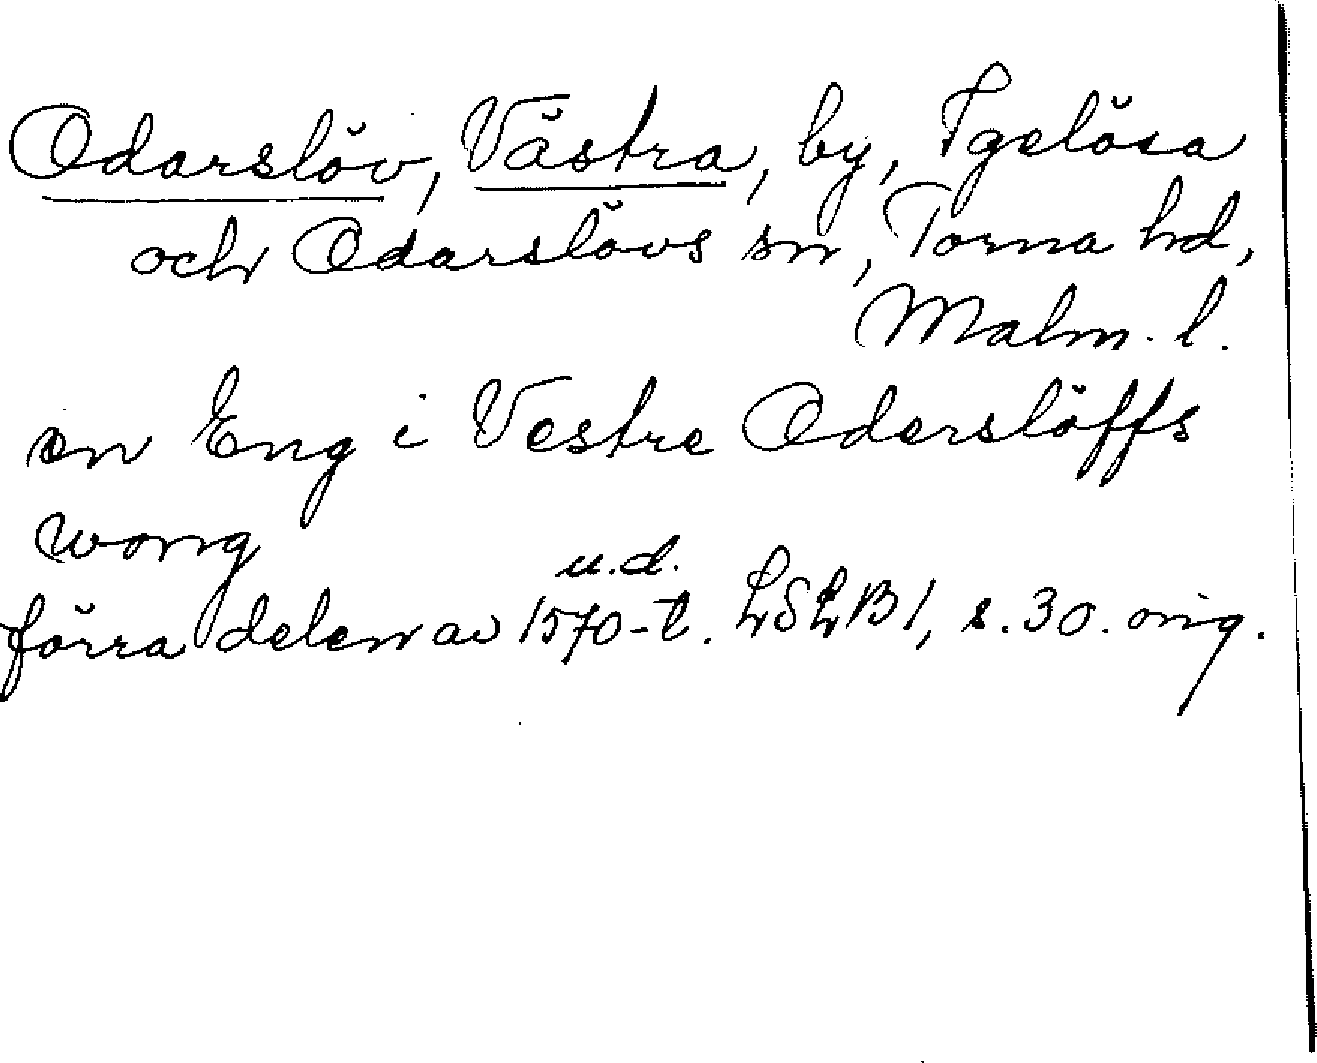 Odarslöv, Västra, by, Igelösa
och Odarslövs sn, Torna hd,
Malm. l.
en Eng i Vestre Oderslöffs
wong
u.d.
förra delen av 1570-t. LSLB 1, s. 30. orig.